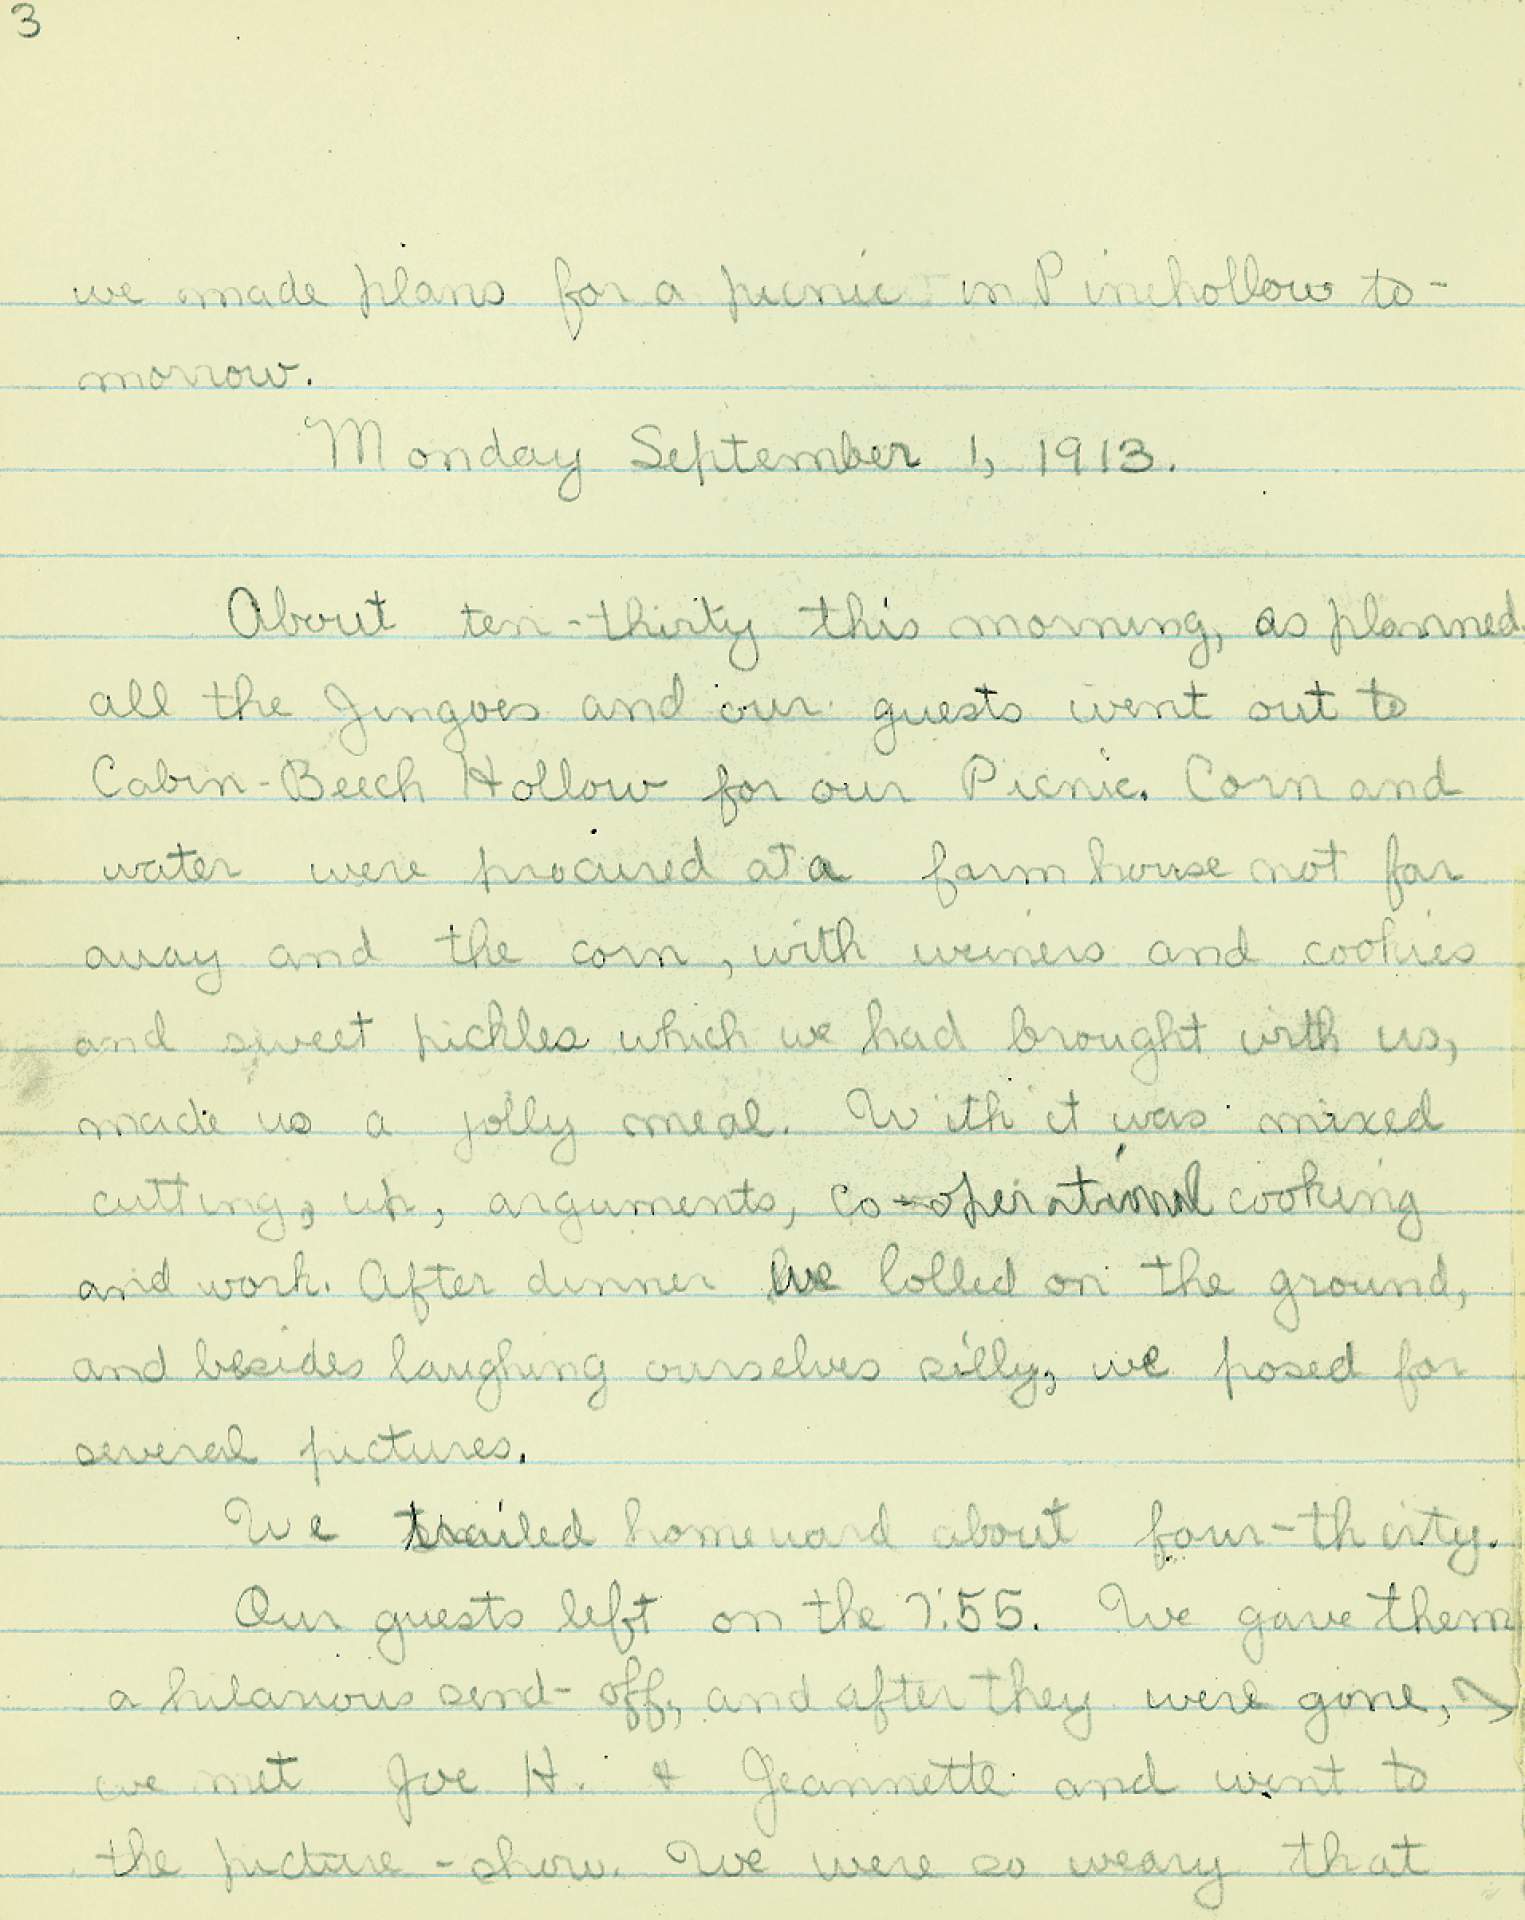 3
we made plans for a picnic in Pinehollow to-
morrow.
Monday September 1, 1913.
About ten-thirty this morning, as planned
all the Jingoes and our guests went out to
Cabin-Beech Hollow for our Picnic. Corn and
water were procured at a farm house not far
away and the corn, with weiners and cookies
and sweet pickles which we had brought with us,
made us a jolly meal. With it was mixed
cutting, up, arguments, co-operational cooking
and work. After dinner we lolled on the ground,
and besides laughing ourselves silly, we posed for
several pictures.
We trailed homeward about four-thirty.
Our guests left on the 7:55. We gave them
a hilarious send-off, and after they were gone,
we met Joe H. & Jeannette and went to
the picture-show. We were so weary that